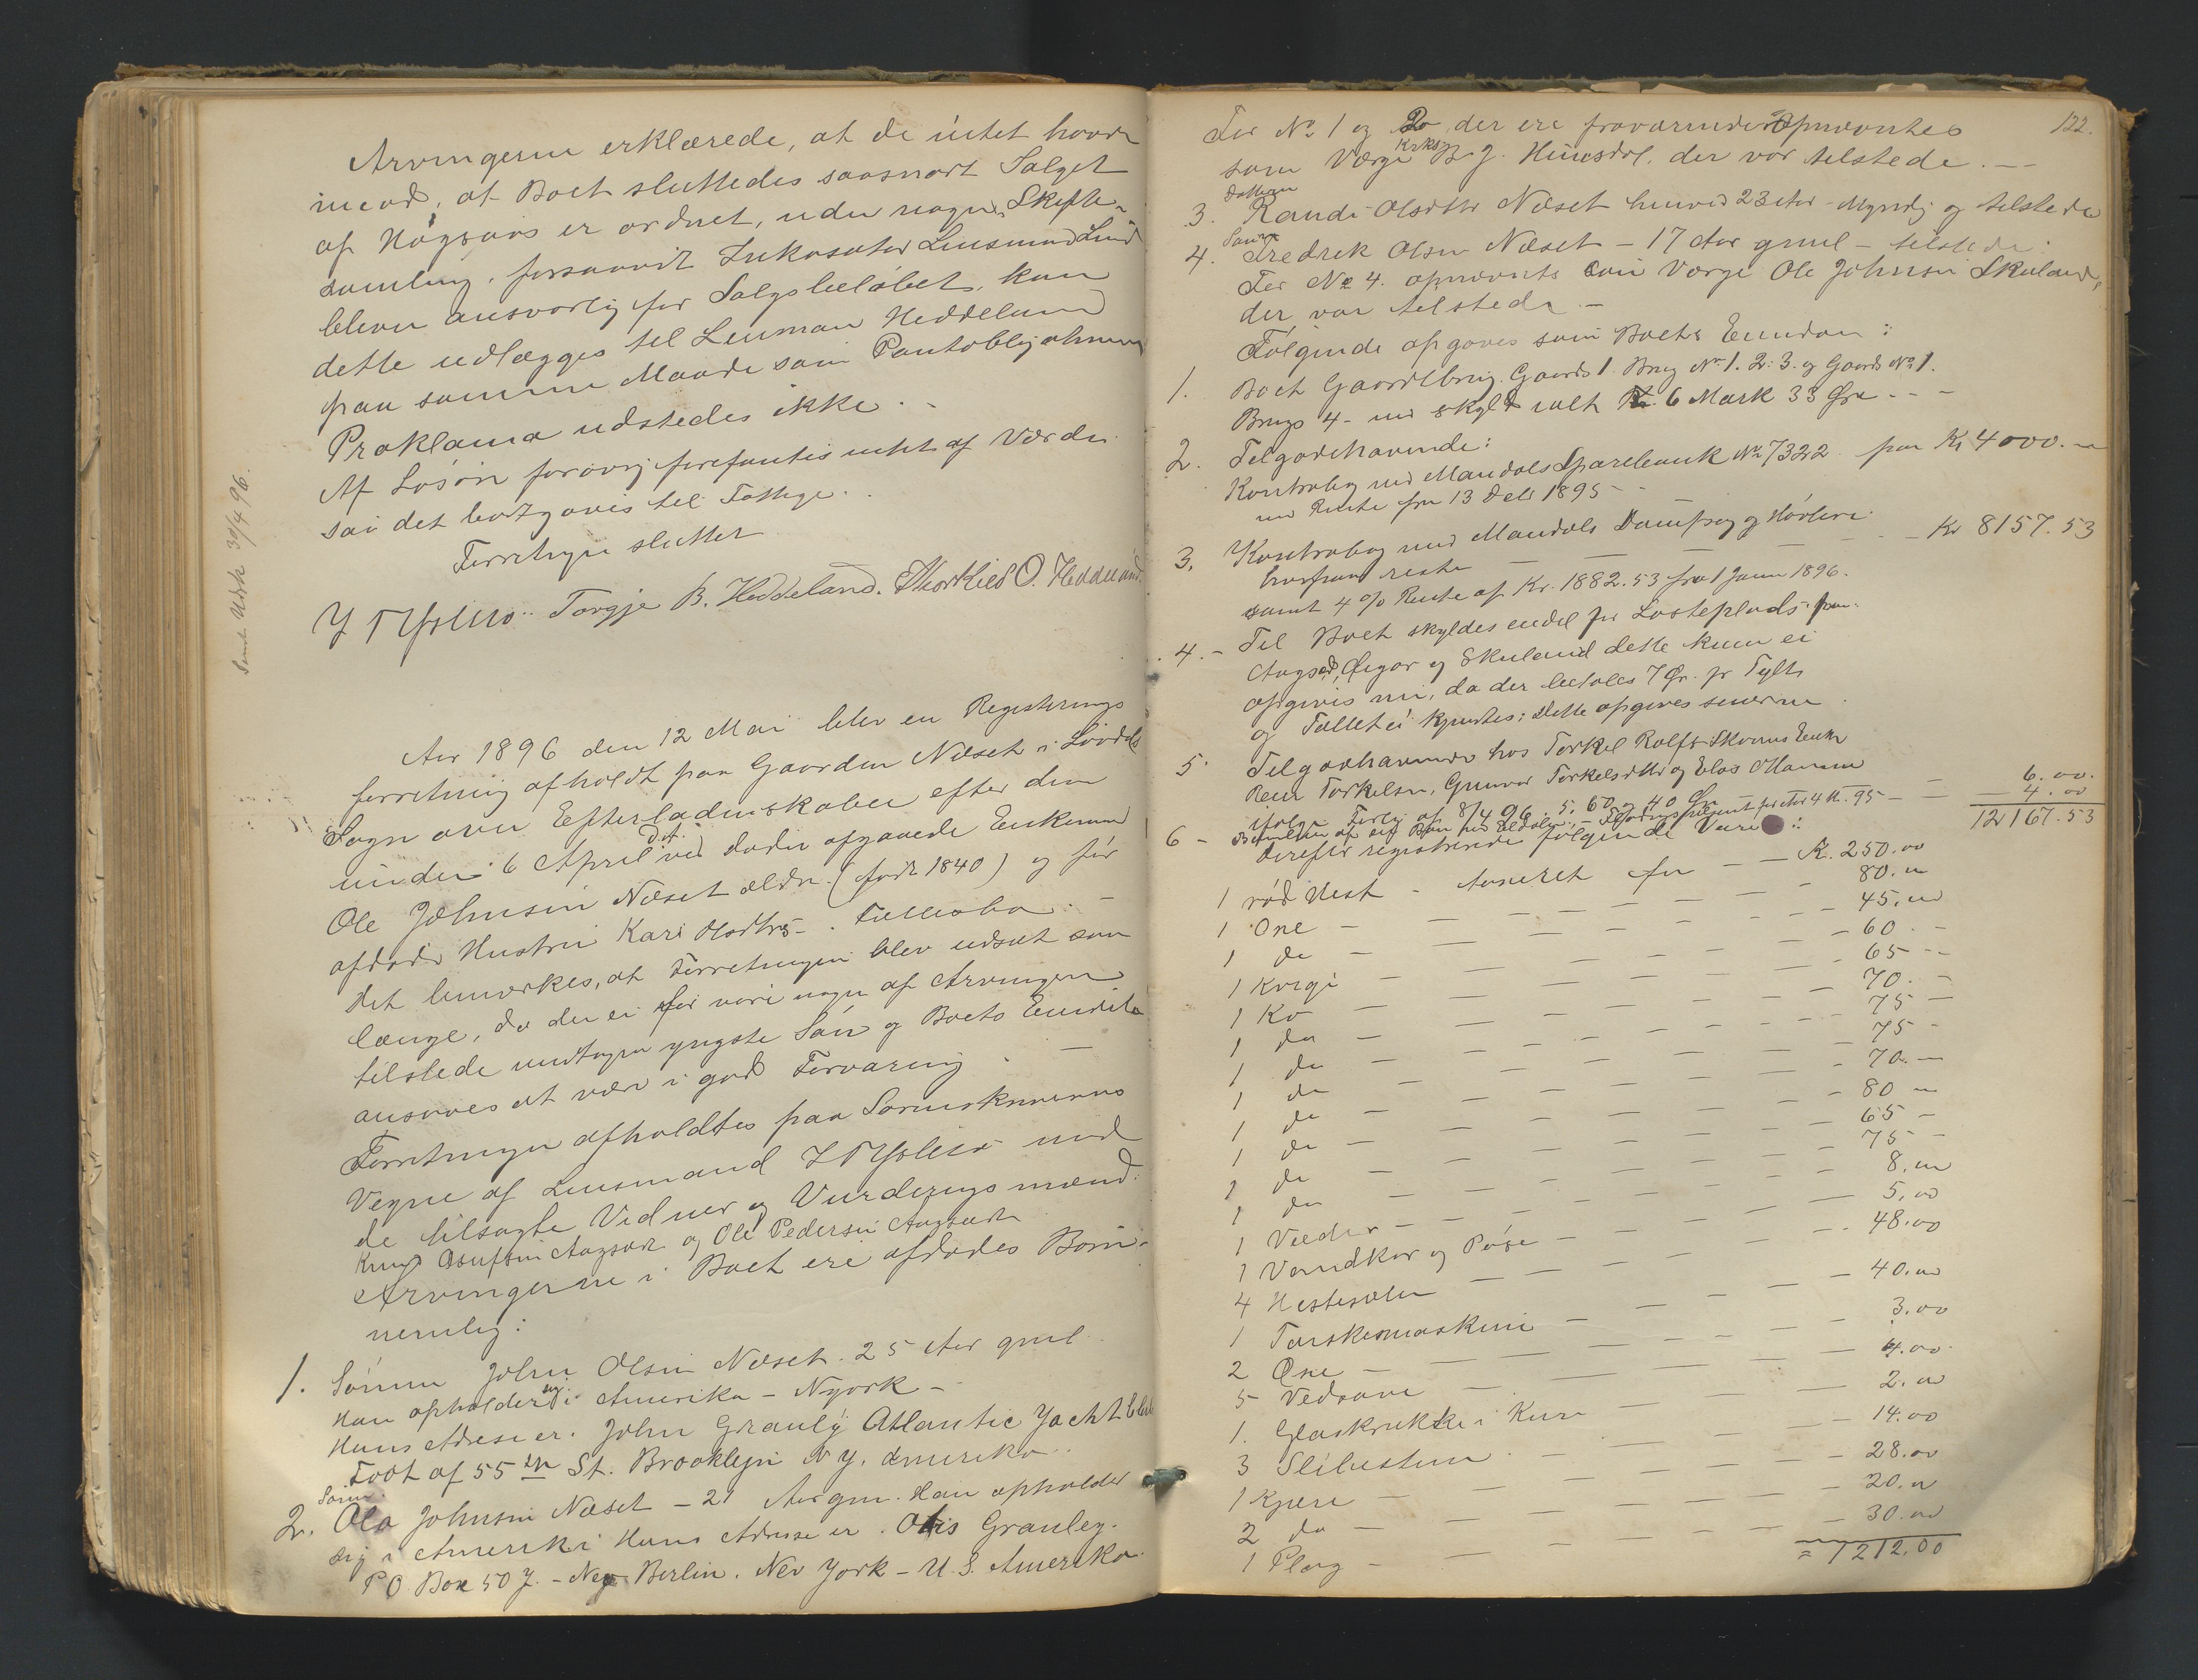 Arvingerne erklærede, at de intet havde
imod, at Boet sluttedes saasnart Salget
af Høgsaas er ordnet, uden nogen Skifte-
samling, forsaavidt Inkasator Lensmand Lund
bliver ansvarlig for Salgsbeløbet, kan
dette udlægges til Lensman Heddeland
paa samme Maade som Pantobligationen
Proklama udstedes ikke. -
Af Løsøre forøvrig forefantes intet af Værdi
saa det bortgaves til Fattige.
Forretningen sluttet
Torgje B. Heddeland. Thorkild O. Heddeland.
Sendt Udsk 30/4 96.
Aar 1896 den 12 Mai blev en Registrerings
forretning afholdt paa Gaarden Næset i Løvdals
Sogn over Efterladenskaber efter den
under 6 April ved Døden afgaaede Enkemand
Ole Johnsen Næset ældre (født 1840) og før
afdøde Hustru Kari Olsdtr - Fællesbo. -
Det bemærkes, at Forretningen blev udsat saa
længe, da der ei før være nogen af Arvingerne
tilstede undtagen yngste Søn og Boets Eiendele
ansaaes at være i god Forvaring. -
Forretningen afholdtes paa Sorenskriverens
Vegne af Lensmand med
de tilsagte Vidner og Vurderingsmænd:
Knud Aagsæd og Ole Pedersen Aagsæd
Arvingerne i Boet ere afdødes Børn -
nemlig:
1. Sønnen John Olsen Næset. 25 Aar gml
Han opholder sig i Amerika - Nyork -
Hans Adresse er. John Grauly Atlantic Yacht Club
Foot of 55 th St. Brooklyn N Y. Amerika..
Sønn
2. Ola Johnsen Næset - 21 Aar gm. Han opholder
sig i Amerika Hans Adresse er. Otis Grauley.
P O. Box 507. - New Berlin. New York - U. S. Amerika.
122.
For No 1 og 2 der ere fraværende Opnævntes
som Værge Krks. B. J. Hinesdal, der var tilstede. -
Datteren
3. Randi Olsdtr Næset henved 23 Aar - Myndig og tilstede
Sønn
4. Fredrik Olsen Næset - 17 Aar gml - tilstede.
For No 4. opnævnts som Værge Ole Johnsen Skuland,
der var tilstede -
Følgende opgaves som Boets Eiendom:
1. Boet Gaardbrug. Gaards 1. Brug No 1. 2. 3. og Gaards No 1.
Brugs 4 - med skyld ialt 6 Mark 33 Øre - -
2. Tilgodehavende:
Kontrabog med Mandals Sparebank No 7322 paa Kr 4000. -
med Rente fra 13 Deb 1895 -
3. Kontrabog med Mandals Dampsag og Høvleri
hvorfra reste - - - - Kr 8157.53
samt 4 % Rente af Kr. 1882.53 fra 1 Janu 1896.
4. - Til Boet skyldes endel for Losteplads paa
Aagsæd, Øigar og Skuland dette kunn ei
opgives nu, da der betales 7 Ør. pr Tylt
og Tallet ei kjendtes; dette opgives senere.
5. Tilgodehavende hos Torkel Rolfs Skouns Enke
Reier Torkelsen, Gunvor Torkelsdtr og Elas OHamne
ifølge Forlig af 8/4 96. 5. 60 og 40 Øre - - 6.00.
6 - - 4.00
12167.53
Derefter registreredes følgende Varer:
1 rød Hest - taxeret for - - Kr. 250.00
1 Oxe - 80.00
1 do - 45.00
1 Kvige - 60. -
1 Ko - 65 -
1 do - 70. -
1 do - 75 -
1 do - 75 -
1 do - 70. -
1 do - 80 -
1 do - 65 -
1 do - 75 -
1 Væder - 8.00
1 Vandkar og Pøse - 5.00
4 Hestesæler - 48.00
1 Tærskemaskine - 40.00
2 Øxe - 3.00
5 Vedsave - 4.00
1. Glaskrukke i Kurv - 2.00
3 Slibesten - 14.00
1 Kjærre - 28.00
2 do - 20.00
1 Plog - 30.00
= 1212.00